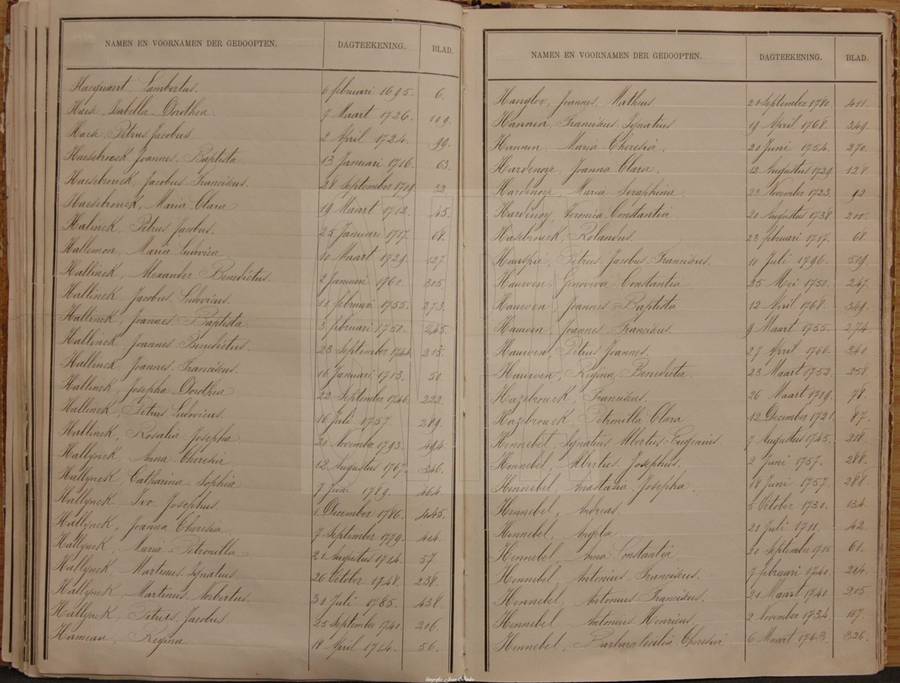 NAMEN EN VOORNAMEN DER GEDOOPTEN. DAGTEEKENING. BLAD.
Hacquart, Lambertus. 6 februari 1695. 6.
Isabella Dorothea 7 Maart 1726. 119.
Haek, Petrus Jacobus 2 April 1724. 99.
Haesebroeck, Joannes Baptista 13 Januari 1716. 63.
Haesebroeck, Jacobus Franciscus. 28 September 1709.
Haesebrouck, Maria Clara 19 Maart 1712. 45.
Halinck, Petrus Jacobus. 25 Januari 1717. 68.
Maria Ludovica 10 Maart 1729. 127.
Hallinck, Alexander Benedictus 2 Januari 1760. 305.
Hallinck, Jacobus Ludovicus. 11 februari 1755. 273.
Hallinck, Joannes Baptista 3 februari 1750. 245.
Hallinck, Joannes Benedictus. 23 September 1744. 215.
Hallinck, Joannes Franciscus. 16 Januari 1713. 50.
Hallinck, Josepha Dorothea 22 September 1746. 222.
Hallinck, Petrus Ludovicus. 16 Juli 1757. 289.
Hallinck, Rosalia Josepha 20 November 1793. 494.
Hallynck, Anna Theresia 12 Augustus 1767. 346.
Hallynck, Catharina Sophia 7 1789. 464.
Hallynck, Ivo Josephus. 1 December 1786. 445.
Hallynck, Joanna Theresia 7 September 1779. 404.
Hallynck, Maria Petronilla 21 Augustus 1714. 57.
Hallynck, Martinus Ignatius 26 October 1748. 238.
Hallynck, Martinus Norbertus. 30 Juli 1785. 438.
Hallynck, Petrus Jacobus 23 September 1740. 206.
Regina 18 April 1714. 56.
NAMEN EN VOORNAMEN DER GEDOOPTEN. DAGTEEKENING. BLAD.
Joannes Mathius 20 September 1780. 411.
Hannen, Franciscus Ignatius 19 April 1768. 349.
Hannen, Maria Theresia 20 Juni 1754. 270.
Hardenoze, Joanna Clara. 12 Augustus 1729. 128.
Hardenoze, Maria Seraphina 22 November 1723. 92.
Constantia 20 Augustus 1738. 200.
Hasebrouck, Rolandus. 23 februari 1717. 68.
Petrus Jacobus Franciscus. 11 Juli 1796. 509.
Hauwen, Ginoveva Constantia 25 Mei 1750. 247.
Hauwen, Joannes Baptista 12 April 1768. 349.
Hauwen, Joannes Franciscus 9 Maart 1755. 274.
Hauwen, Petrus Joannes. 27 April 1766. 340.
Hauwen, Regina Benedicta 23 Maart 1752. 258.
Hazebrouck, Franciscus. 26 Maart 1719. 78.
Hazebrouck, Petronilla Clara 12 December 1721. 87.
Hennebel, Ignatius Albertus Eugenius 7 Augustus 1745. 218.
Hennebel, Albertus Josephus. 2 Juni 1757. 288.
Hennebel, Anastasia Josepha. 18 Juni 1757. 288.
Hennebel, Andreas 6 October 1730. 134.
Hennebel, Angela 21 Juli 1711. 42.
Hennebel, Anna Constantia 21 September 1715. 61.
Hennebel, Antonius Franciscus. 7 februari 1740. 204.
Hennebel, Antonius Franciscus. 21 Maart 1740. 205.
Hennebel, Antonius Henricus. 2 November 1734. 167.
Hennebel, Theresia 6 Maart 1763. 326.